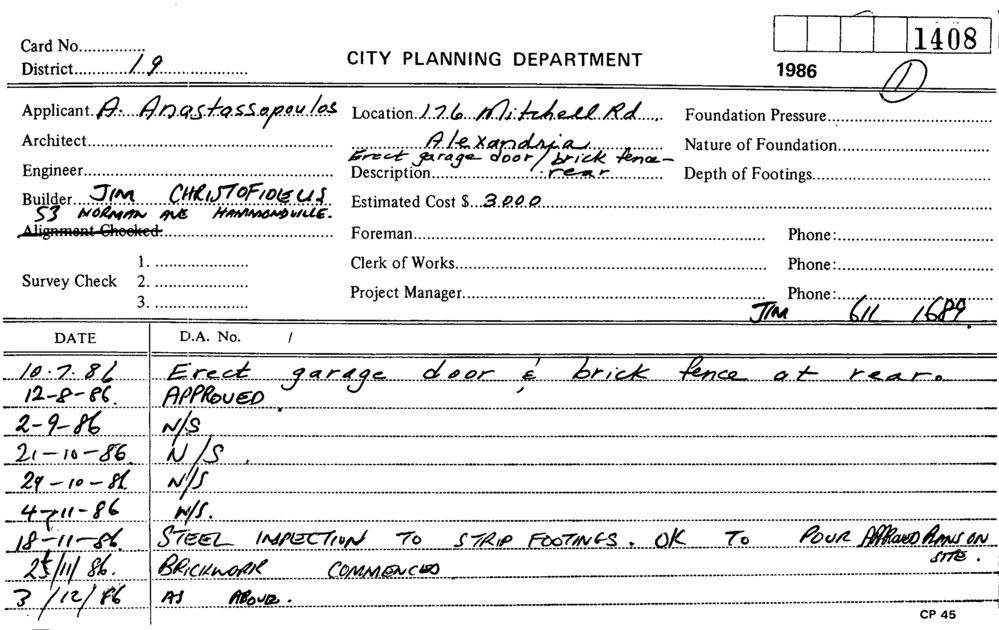 Card No...............
1408
District............19............
CITY PLANNING DEPARTMENT
1986
1
Applicant. A. Anastassopoulos Location. 176 Mitchell Rd Foundation Pressure
Architect Alexandria Nature of Foundation
Erect garage door / brick fence -
Engineer Description rear Depth of Footings
Builder JIM CHRISTOFIDELIS Estimated Cost $ 3000
53 NORMAN AVE HAMMONDVILLE.
Alignment Checked Foreman Phone:
1. Clerk of Works Phone:
Survey Check 2.
3. Project Manager Phone:
JIM 611 1689
DATE D.A. No. /
10.7.86 Erect garage door & brick fence at rear.
12-8-86. APPROVED
2-9-86 N/S
21-10-86 N/S.
29-10-86 N/S
4-11-86 N/S.
18-11-86. STEEL INSPECTION TO STRIP FOOTINGS. OK TO POUR APPROVED PLANS ON
SITE.
25/11/86. BRICKWORK COMMENCED
3/12/86 AS ABOVE.
CP 45